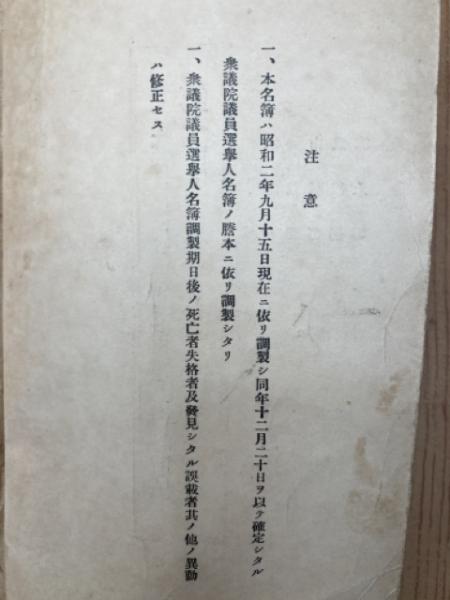 注意
一、本名簿ハ昭和二年九月十五日現在ニ依リ調製シ同年十二月二十日ヲ以テ確定シタル
衆議院議員選擧人名簿ノ謄本ニ依リ調製シタリ
一、衆議院議員選擧人名簿調製期日後ノ死亡者失格者及發見シタル誤載者其ノ他ノ異動
ハ修正セス